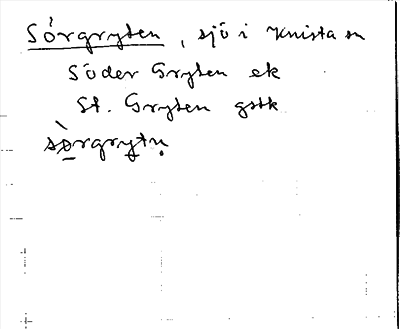 Sörgryten, sjö i Knista sn
Söder Gryten ek
St. Gryten gstk
sò̱rgryt̲ṇ